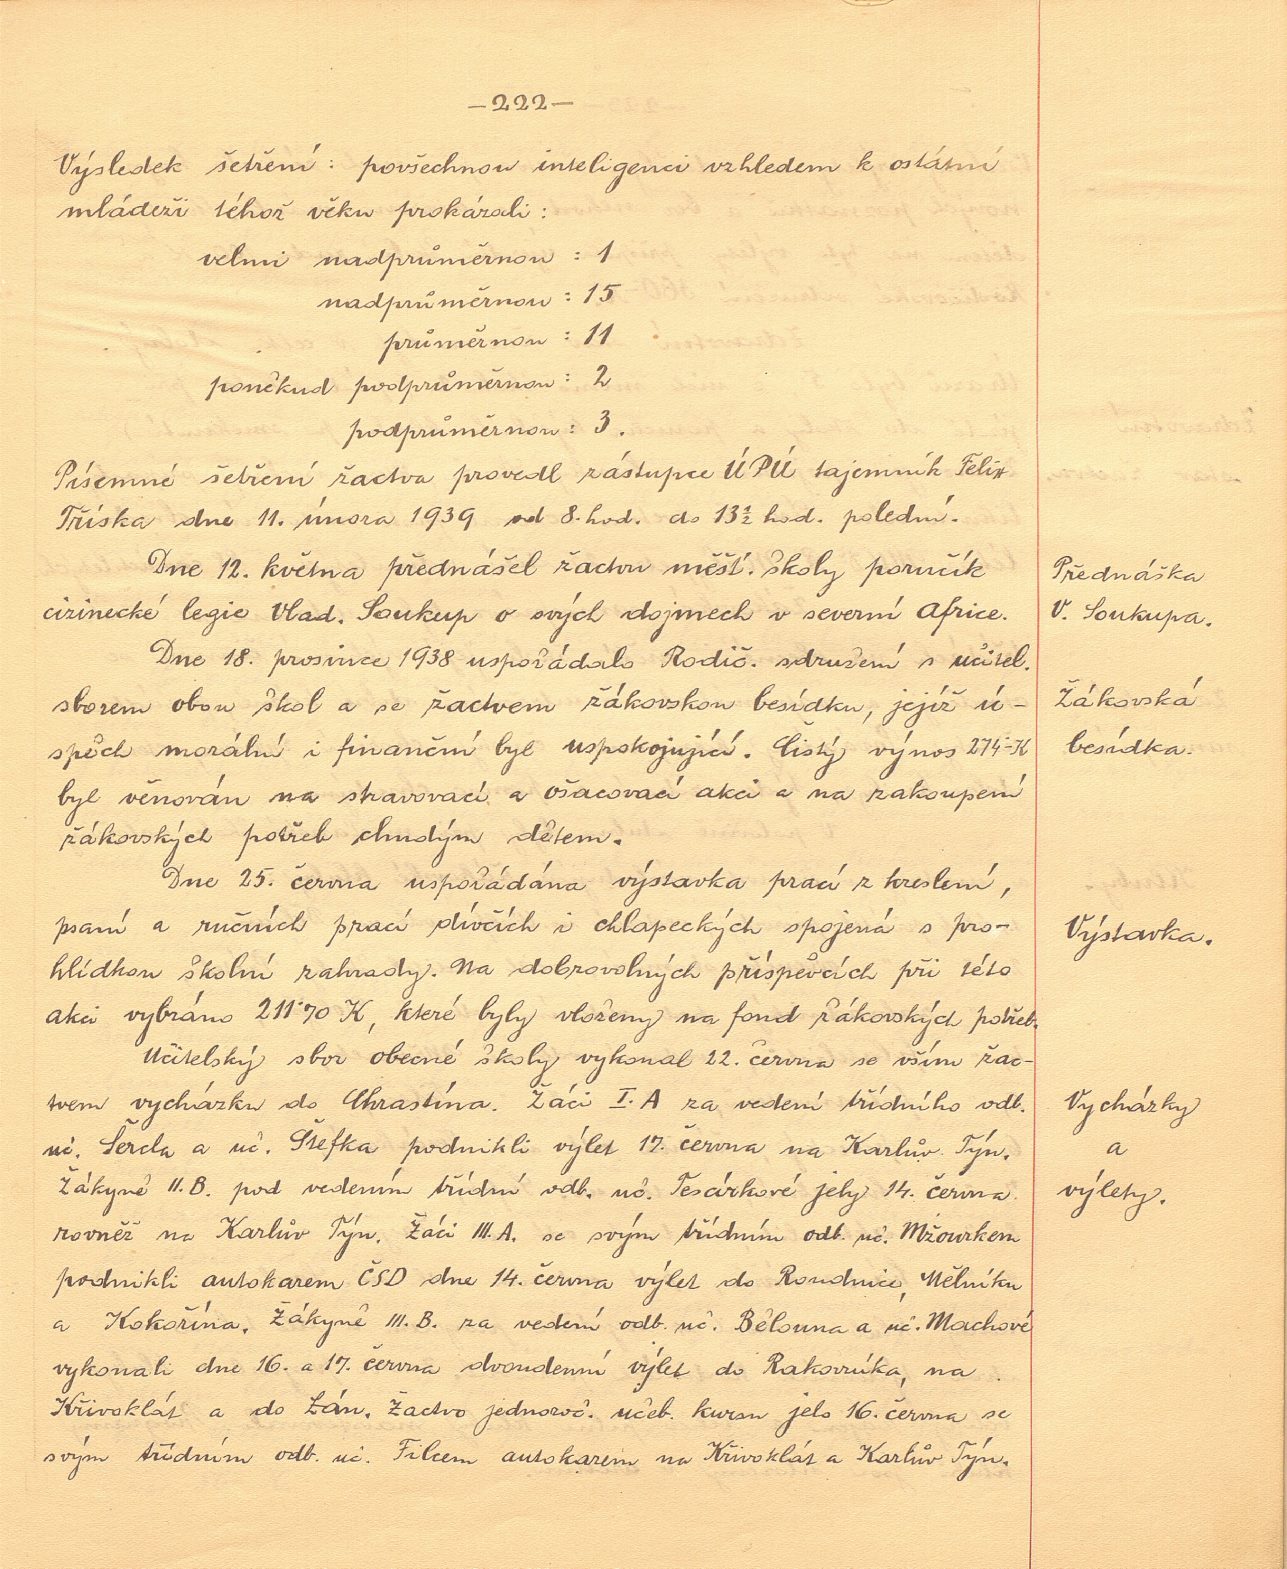 —222—
Výsledek šetření: povšechnou inteligenci vzhledem k ostatní
mládeži téhož věku prokázali:
velmi nadprůměrnou : 1
nadprůměrnou : 15
průměrnou : 11
poněkud podprůměrnou : 2
podprůměrnou : 3.
Písemné šetření žactva provedl zástupce ÚPÚ tajemník Felix
Tříska dne 11. února 1939 od 8. hod. do 13½ hod. polední.
Dne 12. května přednášel žactvu měšť. školy poručík
Přednáška
cizinecké legie Vlad. Soukup o svých dojmech v severní Africe.
V. Soukupa.
Dne 18. prosince 1938 uspořádalo Rodič. sdružení s učitel.
sborem obou škol a se žactvem žákovskou besídku, jejíž ú-
Žákovská
spěch morální i finanční byl uspokojující. Čistý výnos 274·-K
besídka.
byl věnován na stravovací a ošacovací akci a na zakoupení
žákovských potřeb chudým dětem.
Dne 25. června uspořádána výstavka prací z kreslení,
psaní a ručních prací dívčích i chlapeckých spojená s pro-
Výstavka.
hlídkou školní zahrady. Na dobrovolných příspěvcích při této
akci vybráno 211·70 K, které byly vloženy na fond žákovských potřeb.
Učitelský sbor obecné školy vykonal 22. června se vším žac-
tvem vycházku do Chrastína. Žáci I. A za vedení třídního odb.
Vycházky
uč. Šercla a uč. Štefka podnikli výlet 17. června na Karlův Týn.
a
Žákyně II. B. pod vedením třídní odb. uč. Tesárkové jely 14. června
výlety.
rovněž na Karlův Týn. Žáci III. A. se svým třídním odb. uč. Mžourkem
podnikli autokarem ČSD dne 14. června výlet do Roudnice, Mělníku
a Kokořína. Žákyně III. B. za vedení odb. uč. Bělouna a uč. Machové
vykonali dne 16. a 17. června dvoudenní výlet do Rakovníka, na
Křivoklát a do Lán. Žactvo jednoroč. učeb. kursu jelo 16. června se
svým třídním odb. uč. Filcem autokarem na Křivoklát a Karlův Týn.